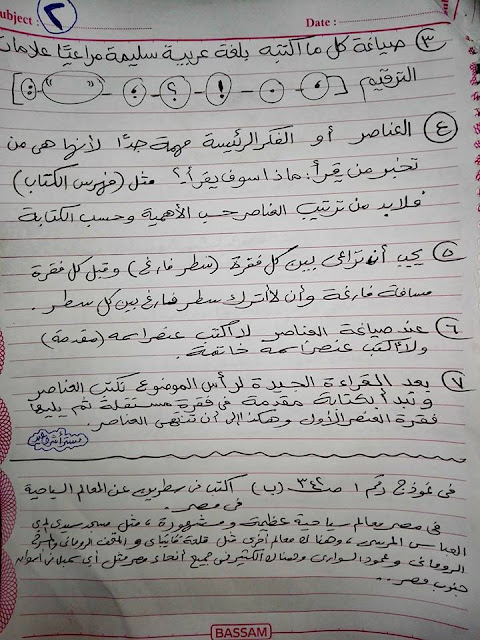 Subject : ٢ Date :
٣ صياغة كل ما أكتبه بلغة عربية سليمة مراعيًا علامات
الترقيم [ ، - . - ! - ؟ - ؛ - " " - : ]
٤ العناصر أو الفكر الرئيسة مهمة جدًا لأنها هى من
تخبر من يقرأ : ماذا سوف يقرأ ؟ مثل (فهرس الكتاب)
فلابد من ترتيب العناصر حسب الأهمية وحسب الكتابة
٥ يجب أن تراعى بين كل فقرة (سطر فارغ) وقبل كل فقرة
مسافة فارغة وأن لا أترك سطر فارغ بين كل سطر .
٦ عند صياغة العناصر لا أكتب عنصر اسمه (مقدمة)
ولا أكتب عنصر اسمه خاتمة .
٧ بعد القراءة الجيدة لرأس الموضوع نكتب العناصر
ونبدأ بكتابة مقدمة فى فقرة مستقلة ثم يليها
فقرة العنصر الأول وهكذا إلى أن تنتهى العناصر.
مستر أشرف
فى نموذج رقم ١ ص ٣٤٢ (ب) أكتب فى سطرين عن المعالم السياحية
فى مصر .
فى مصر معالم سياحية عظيمة ومشهورة ، مثل مسجد سيدى أبى
العباس المرسى ، وهناك معالم أخرى مثل قلعة قايتباى و المتحف الرومانى والمسرح
الرومانى وعمود السوارى وهناك الكثير فى جميع أنحاء مصر مثل أبى سمبل فى أسوان
جنوب مصر ..
BASSAM